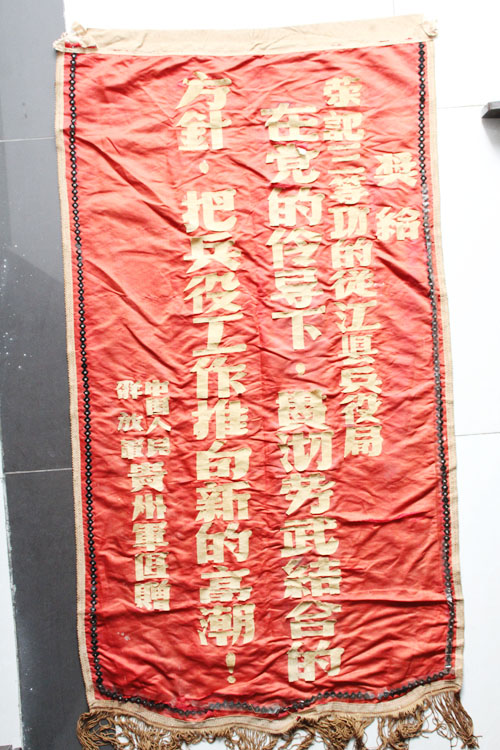 奖给
荣記三等功的從江县兵役局
在党的伶导下，貫彻劳武結合的
方針，把兵役工作推向新的高潮！
中国人民
解放軍貴州軍区贈